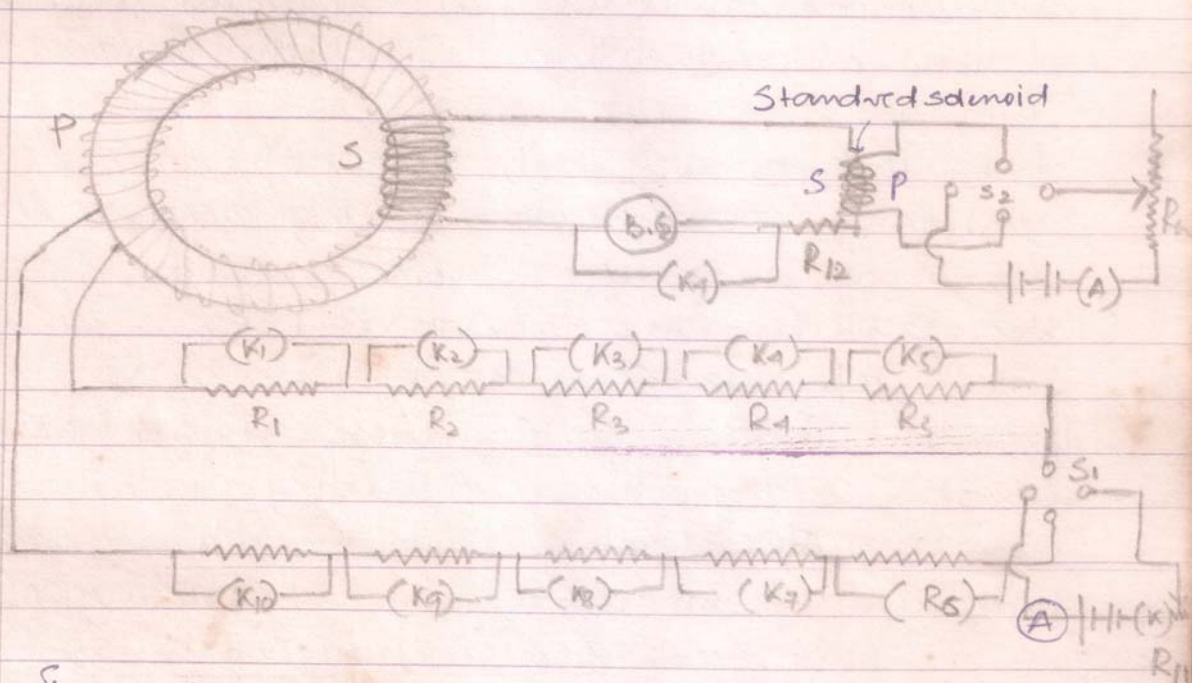 Standred solenoid
P
S
S P S2
B.G
R12
(K1)
(A)
(K1) (K2) (K3) (K4) (K5)
R1 R2 R3 R4 R5
S1
(K10) (K9) (K8) (K7) (R6)
A (K)
R11